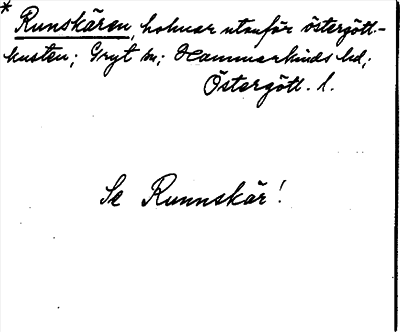 * Runskären, holmar utanför östergött-
kusten; Gryt sn; Hammarkinds hd;
Östergötl. l.
Se Runnskär!